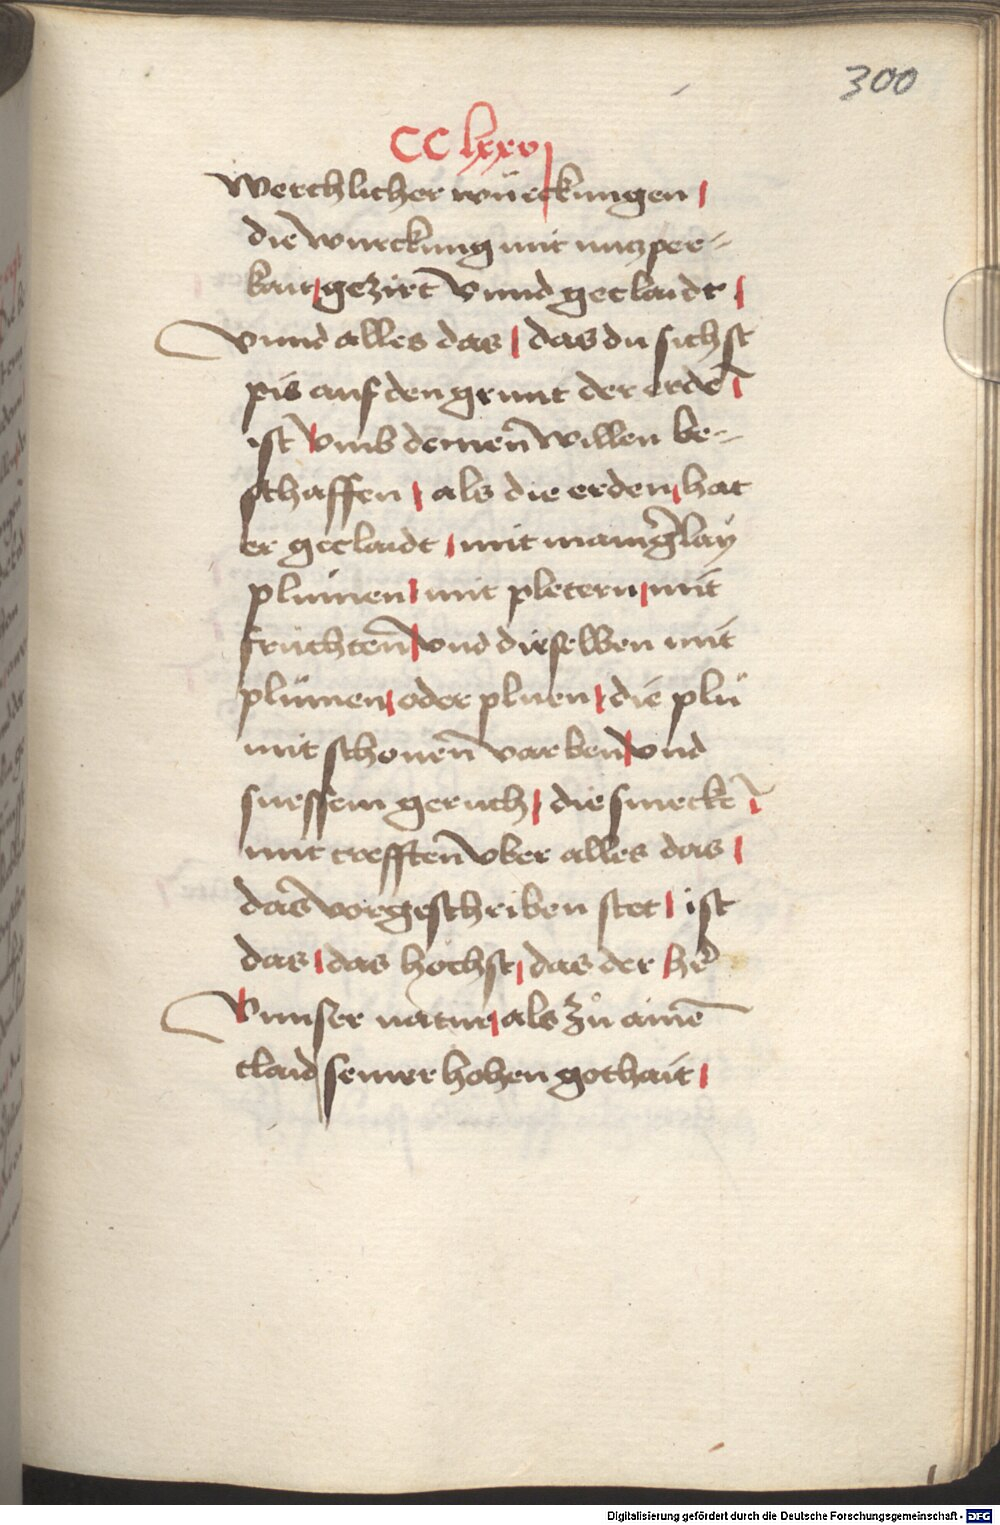 300
CClxxvj
werchlicher würckungen /
die wurckung mit nuczper=
kait / gezirt vnnd geclaidt /
vnnd alles das / das du sichst
pis auf den grunt der erdē /
ist vmb deinen willen be=
schaffen / als die erden / hat
er geclaidt / mit manigerlay
plumen / mit pletern / mit
fruchten / vnd dieselben mit
plümen / oder pluen / die plü
mit schonen varben / vnd
suessem geruch / die smeckē /
mit crefften vber alles das /
das vorgeschriben stet / ist
das / das höchst / das der hr̄
vnnser natur / als zů ainē
claid seiner hohen gothait /
Digitalisierung gefördert durch die Deutsche Forschungsgemeinschaft - DFG